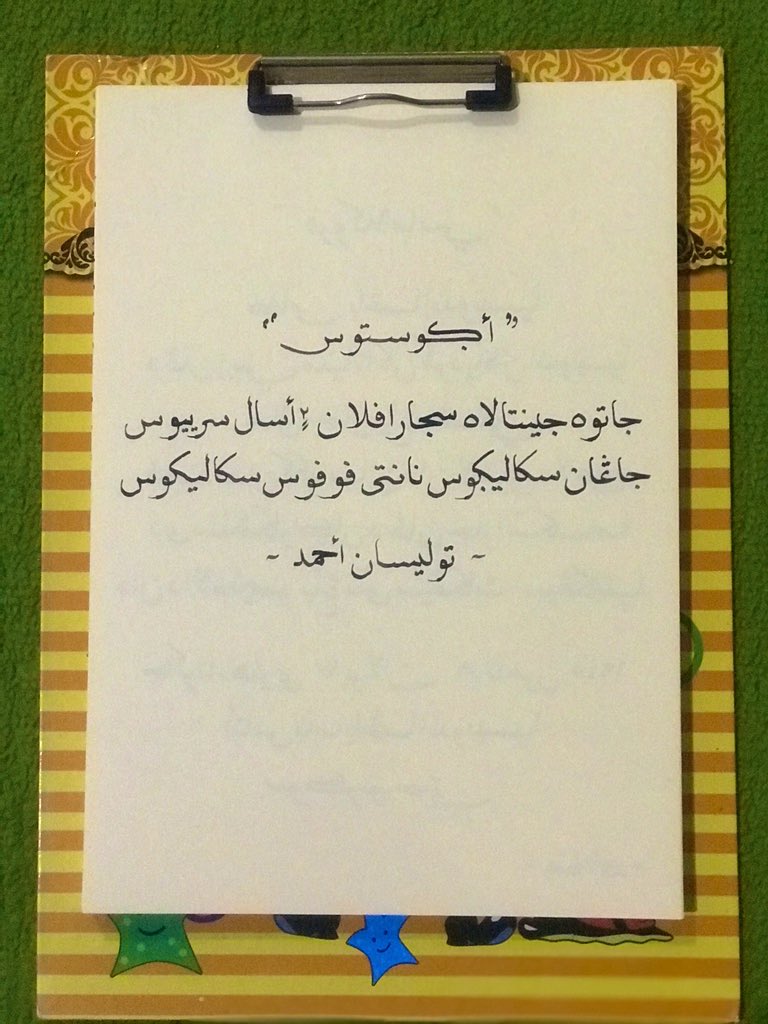 " أڮوستوس "
جاتوه جينتالاه سجارا فلان ٢ أسال سرييوس
جاڠان سكاليڮوس نانتى فوفوس سكاليكوس
- توليسان أحمد -